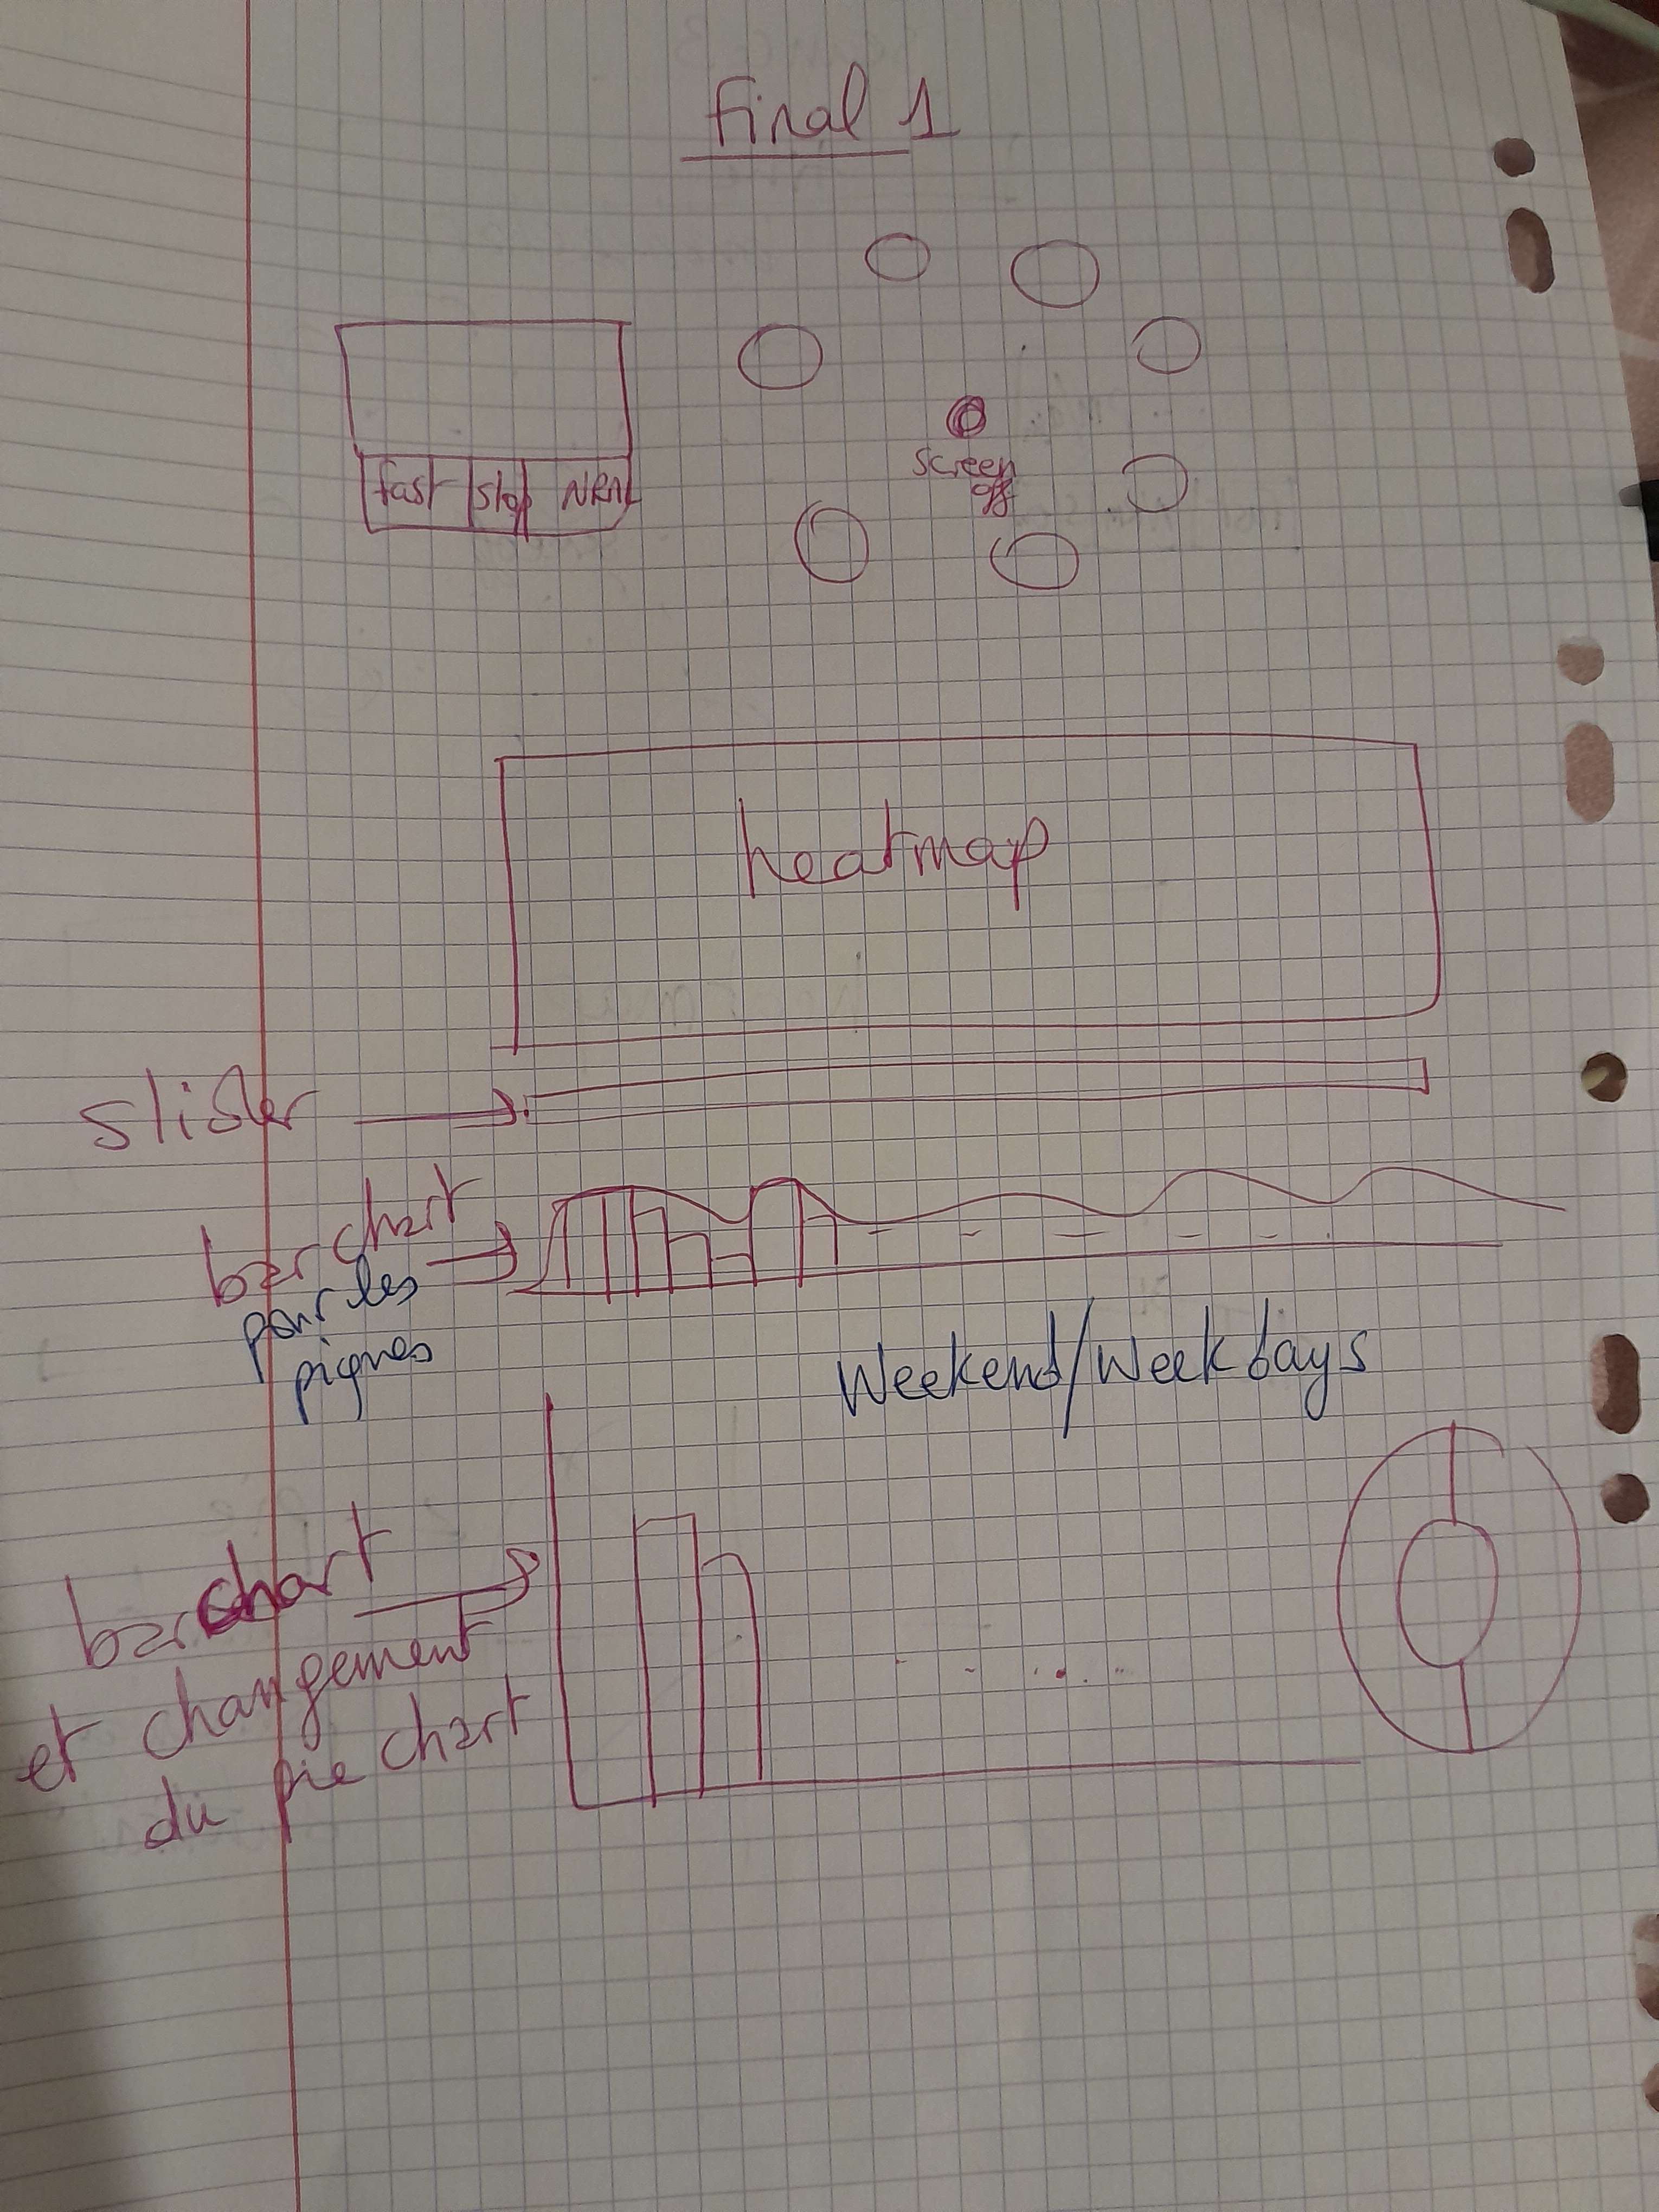 Final 1
fast stop NRML
screen
off
heatmap
slider
bar chart
pour les
piqnes
Weekend/Weekdays
barchart
et changement
du pie chart